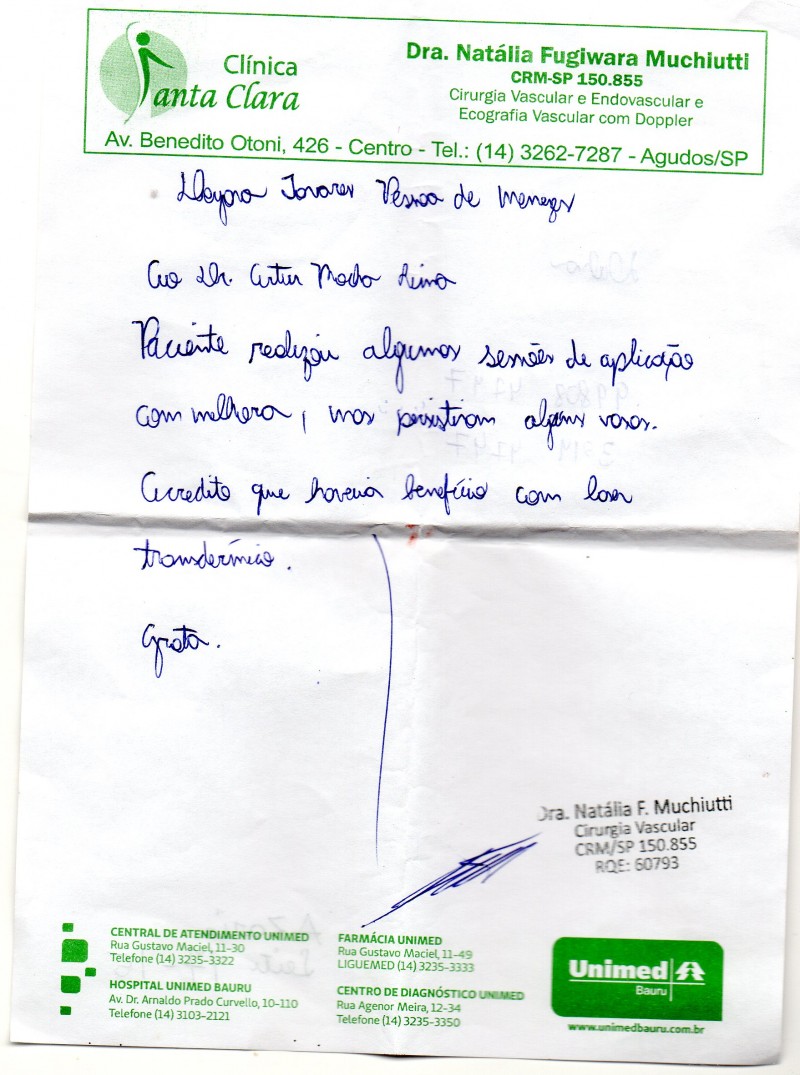 Clínica
Santa Clara
Dra. Natália Fugiwara Muchiutti
CRM-SP 150.855
Cirurgia Vascular e Endovascular e
Ecografia Vascular com Doppler
Av. Benedito Otoni, 426 - Centro - Tel.: (14) 3262-7287 - Agudos/SP
Tavares Pessoa de Menezes
Ao Dr. Artur Lima
Paciente realizou algumas sessões de aplicação
com melhora, mas persistiram alguns vasos.
Acredito que haveria benefício com laser
transdérmico.
Grata.
Dra. Natália F. Muchiutti
Cirurgia Vascular
CRM/SP 150.855
RQE: 60793
CENTRAL DE ATENDIMENTO UNIMED
Rua Gustavo Maciel, 11-30
Telefone (14) 3235-3322
HOSPITAL UNIMED BAURU
Av. Dr. Arnaldo Prado Curvello, 10-110
Telefone (14) 3103-2121
FARMÁCIA UNIMED
Rua Gustavo Maciel, 11-49
LIGUEMED (14) 3235-3333
CENTRO DE DIAGNÓSTICO UNIMED
Rua Agenor Meira, 12-34
Telefone (14) 3235-3350
Unimed
Bauru
www.unimedbauru.com.br